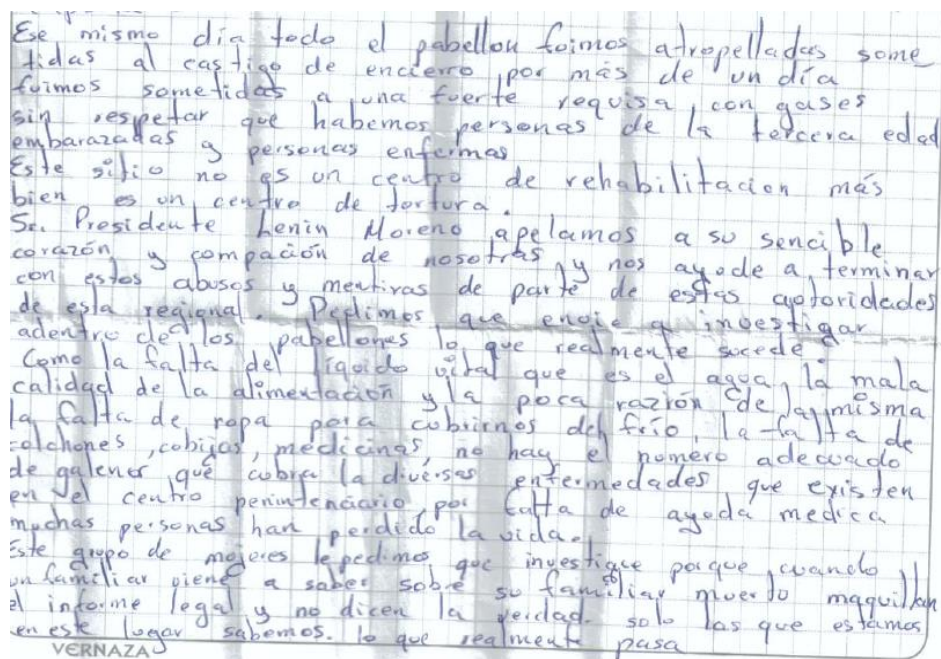 Ese mismo día todo el pabellon foimos atropelladas some
tidas al castigo de encierro por más de un día
fuimos sometidas a una fuerte requisa, con gases
sin respetar que habemos personas de la tercera edad
embarazadas y personas enfermas
Este sitio no es un centro de rehabilitacion más
bien es un centro de tortura.
Sr. Presidente Lenin Moreno apelamos a su sencible
corazón y compación de nosotras, y nos ayude a terminar
con estos abusos y mentiras de parte de estas autoridades
de esta regional. Pedimos que envie a investigar
adentro de los pabellones lo que realmente sucede.
Como la falta del liquido vital que es el agua, la mala
calidad de la alimentación y la poca razión de la misma
la falta de ropa para cubrirnos del frío, la falta de
colchones, cobijas, medicinas, no hay el numero adecuado
de galenos que cubra la diversas enfermedades que existen
en el centro penintenciario, por falta de ayuda medica
muchas personas han perdido la vida.
Este grupo de mujeres le pedimos que investigue porque cuando
un familiar viene a saber sobre su familiar muerto maquillan
el informe legal y no dicen la verdad. solo las que estamos
en este lugar sabemos. lo que realmente pasa
VERNAZA